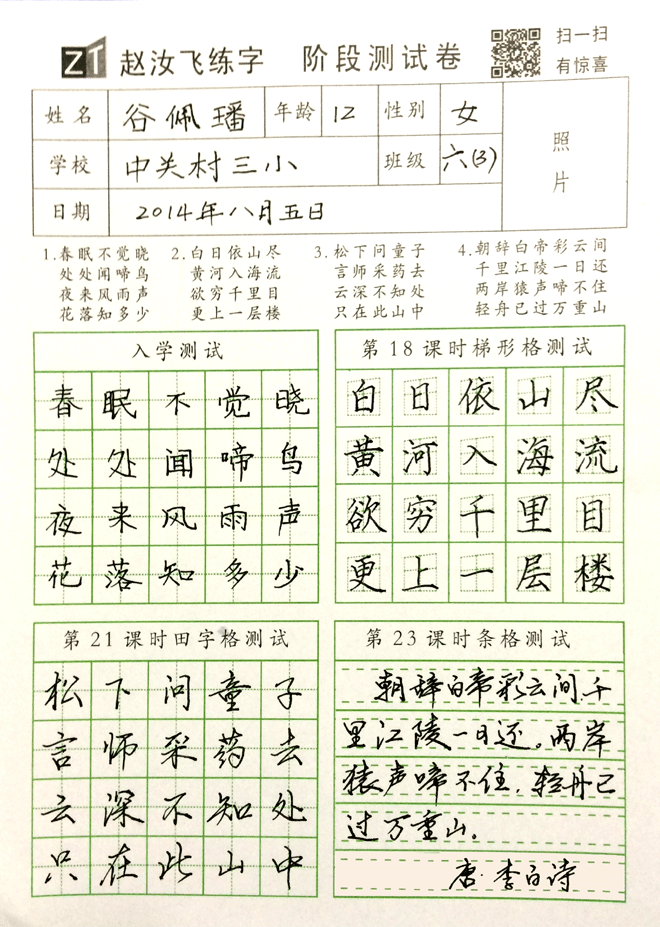 ZT 赵汝飞练字 阶段测试卷 扫一扫
有惊喜
姓名 谷佩璠 年龄 12 性别 女 照片
学校 中关村三小 班级 六(3)
日期 2014年八月五日
1.春眠不觉晓
处处闻啼鸟
夜来风雨声
花落知多少
2.白日依山尽
黄河入海流
欲穷千里目
更上一层楼
3.松下问童子
言师采药去
云深不知处
只在此山中
4.朝辞白帝彩云间
千里江陵一日还
两岸猿声啼不住
轻舟已过万重山
入学测试
春眠不觉晓
处处闻啼鸟
夜来风雨声
花落知多少
第18课时梯形格测试
白日依山尽
黄河入海流
欲穷千里目
更上一层楼
第21课时田字格测试
松下问童子
言师采药去
云深不知处
只在此山中
第23课时条格测试
朝辞白帝彩云间千
里江陵一日还。两岸
猿声啼不住,轻舟已
过万重山。
唐·李白诗